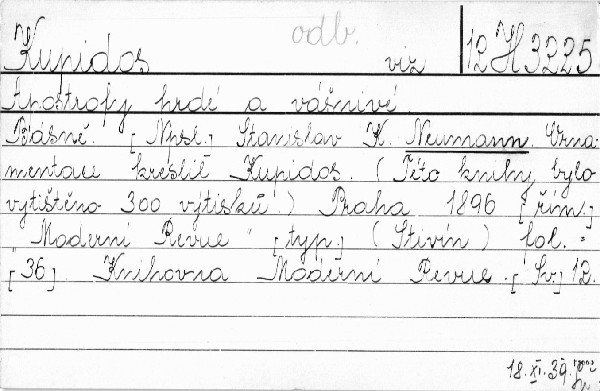 odb.
Kupidos viz 12 H 3225
Apostrofy hrdé a vášnivé.
Básně. [Npsl.] Stanislav K. Neumann. Orna-
mentaci kreslil Kupidos. (Této knihy bylo
vytištěno 300 výtisků.) Praha 1896 [řím.]
"Moderní Revue" [typ.] (Stivín) fol. =
[36]. Knihovna Moderní Revue. [Sv.] 12.
18. XI. 39.